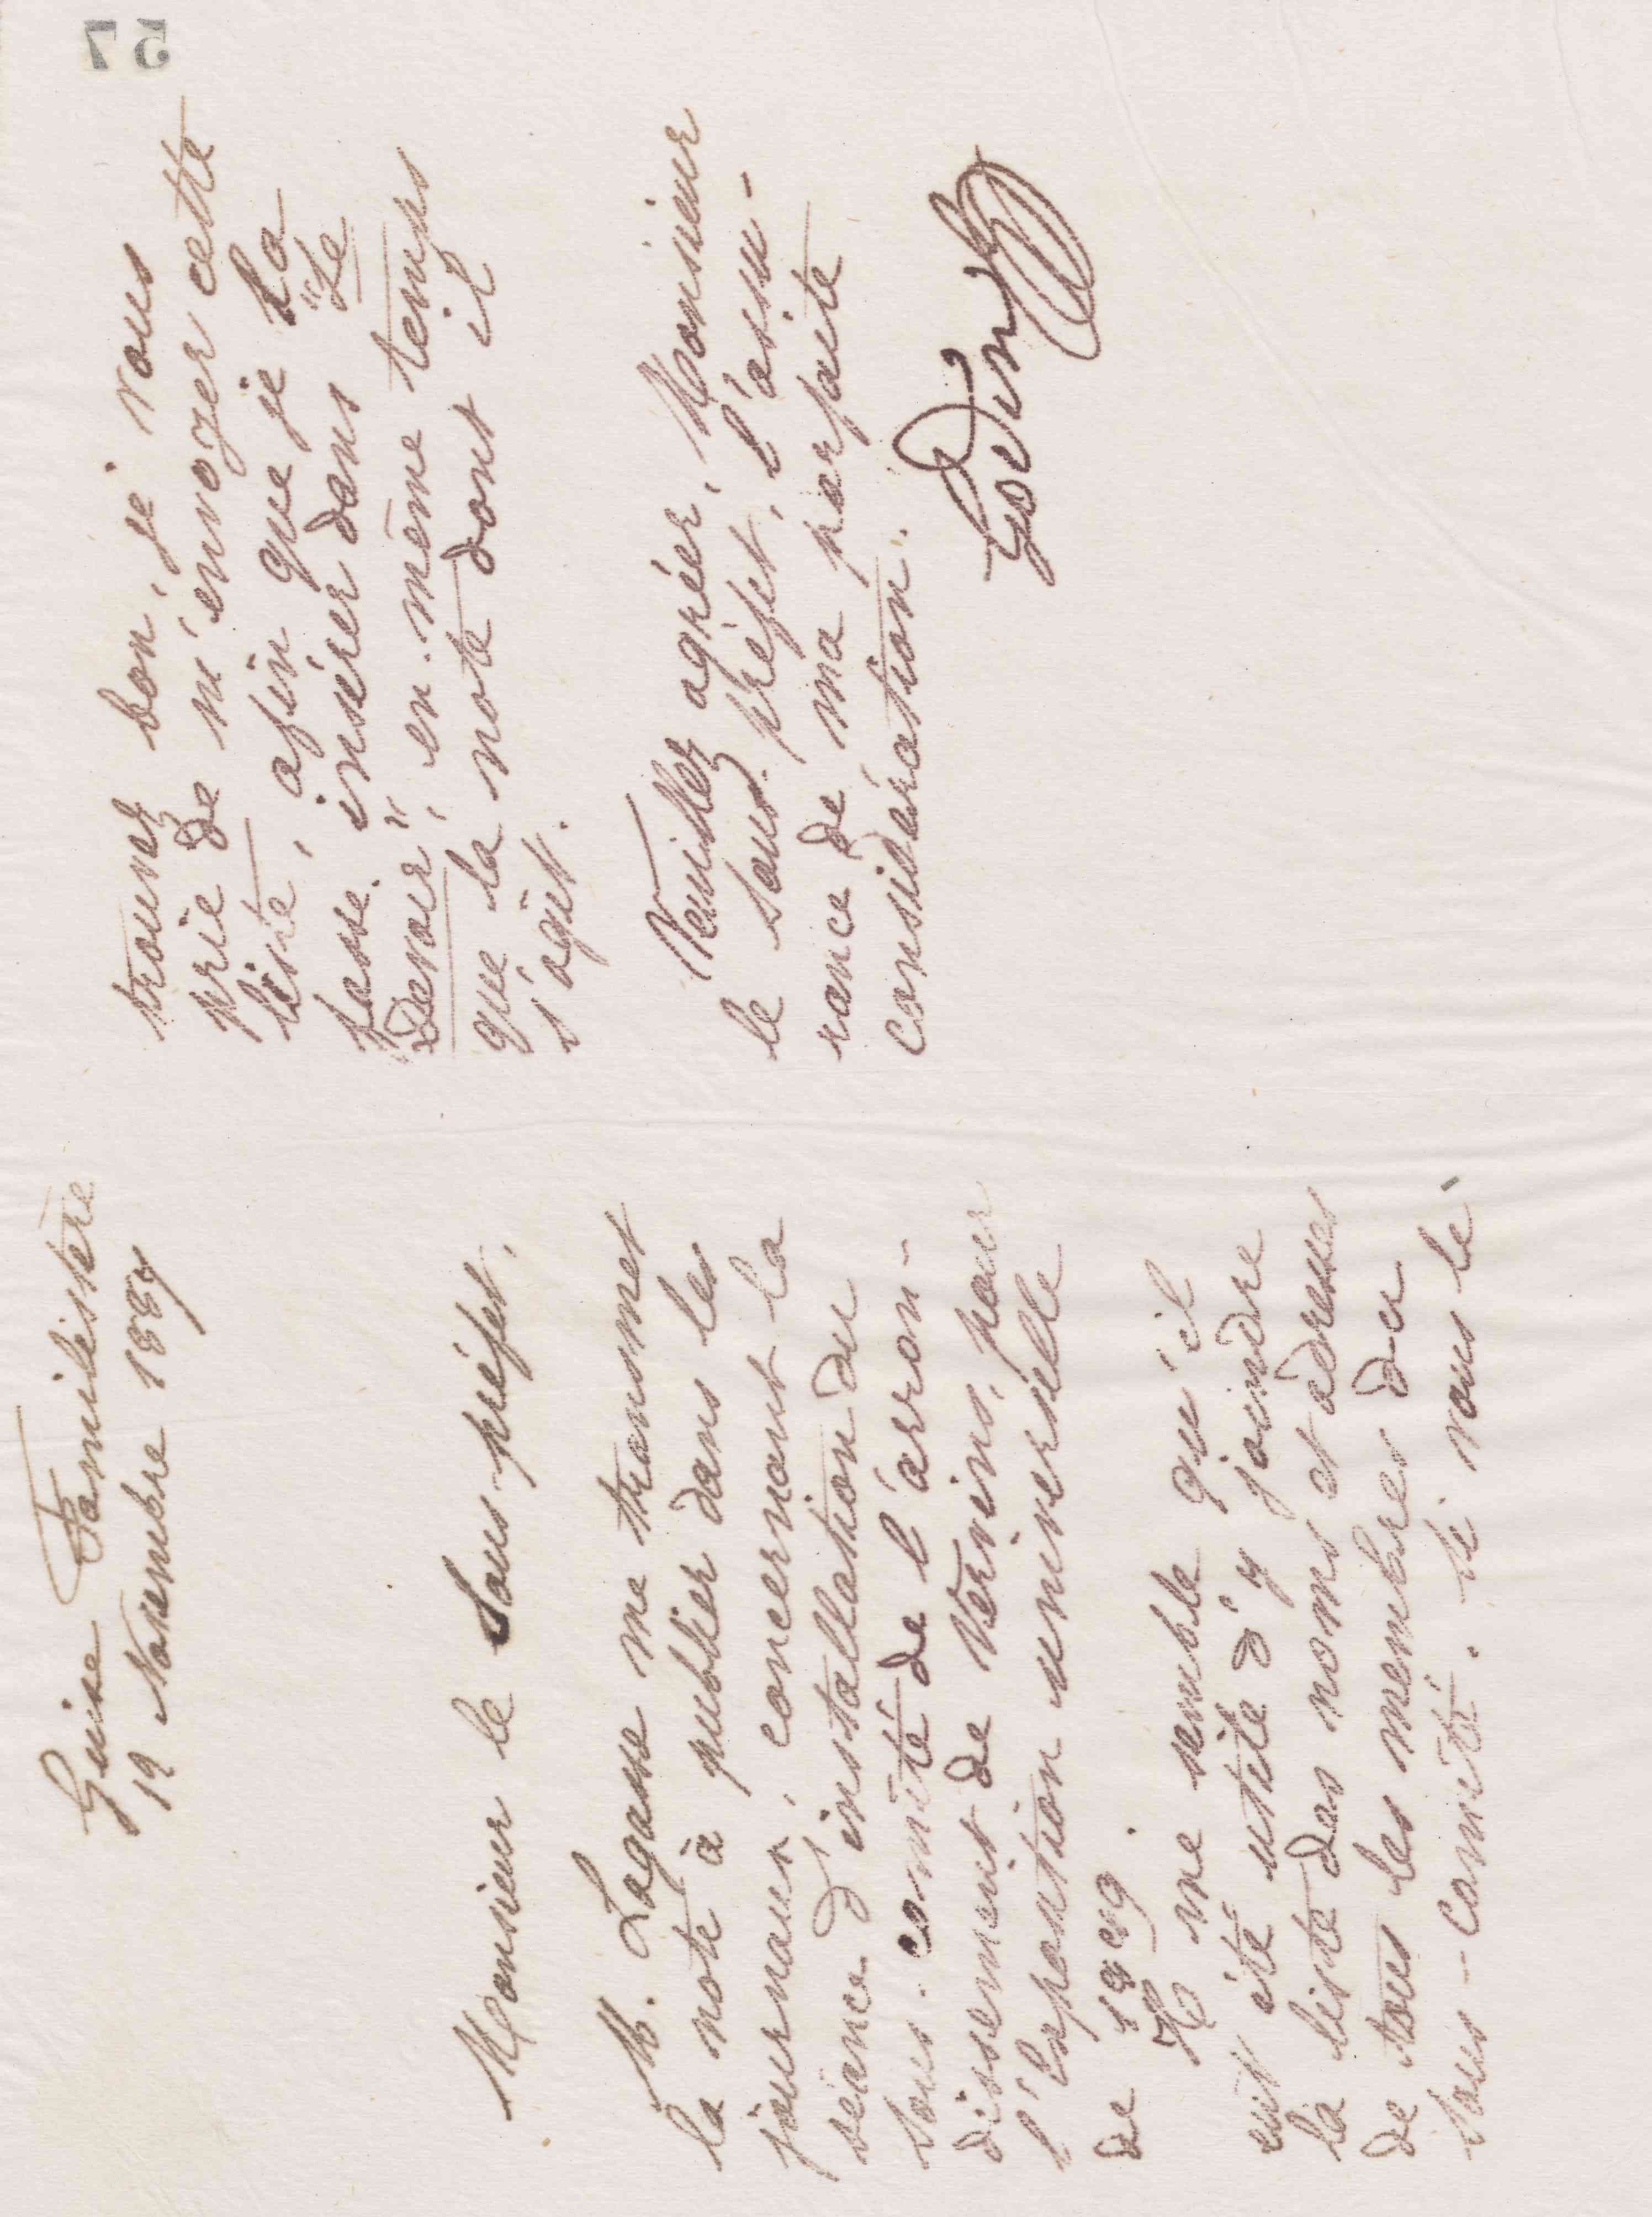 Guise Familistère
19 Novembre 1887
Monsieur le Sous-préfet,
M. Lagasse me transmet
la note à publier dans les
journaux, concernant la
séance d'installation du
sous-comité de l'arron-
dissement de Vervins, pour
l'Exposition universelle
de 1889.
Il me semble qu'il
eut été utile d'y joindre
la liste des noms et adresses
de tous les membres du
sous-comité. Si vous le
57
trouvez bon, je vous
prie de m'envoyer cette
liste, afin que je la
fasse insérer dans "Le
Devoir", en même temps
que la note dont il
s'agit.
Veuillez agréer, Monsieur
le sous-préfet, l'assu-
rance de ma parfaite
considération.
Godin